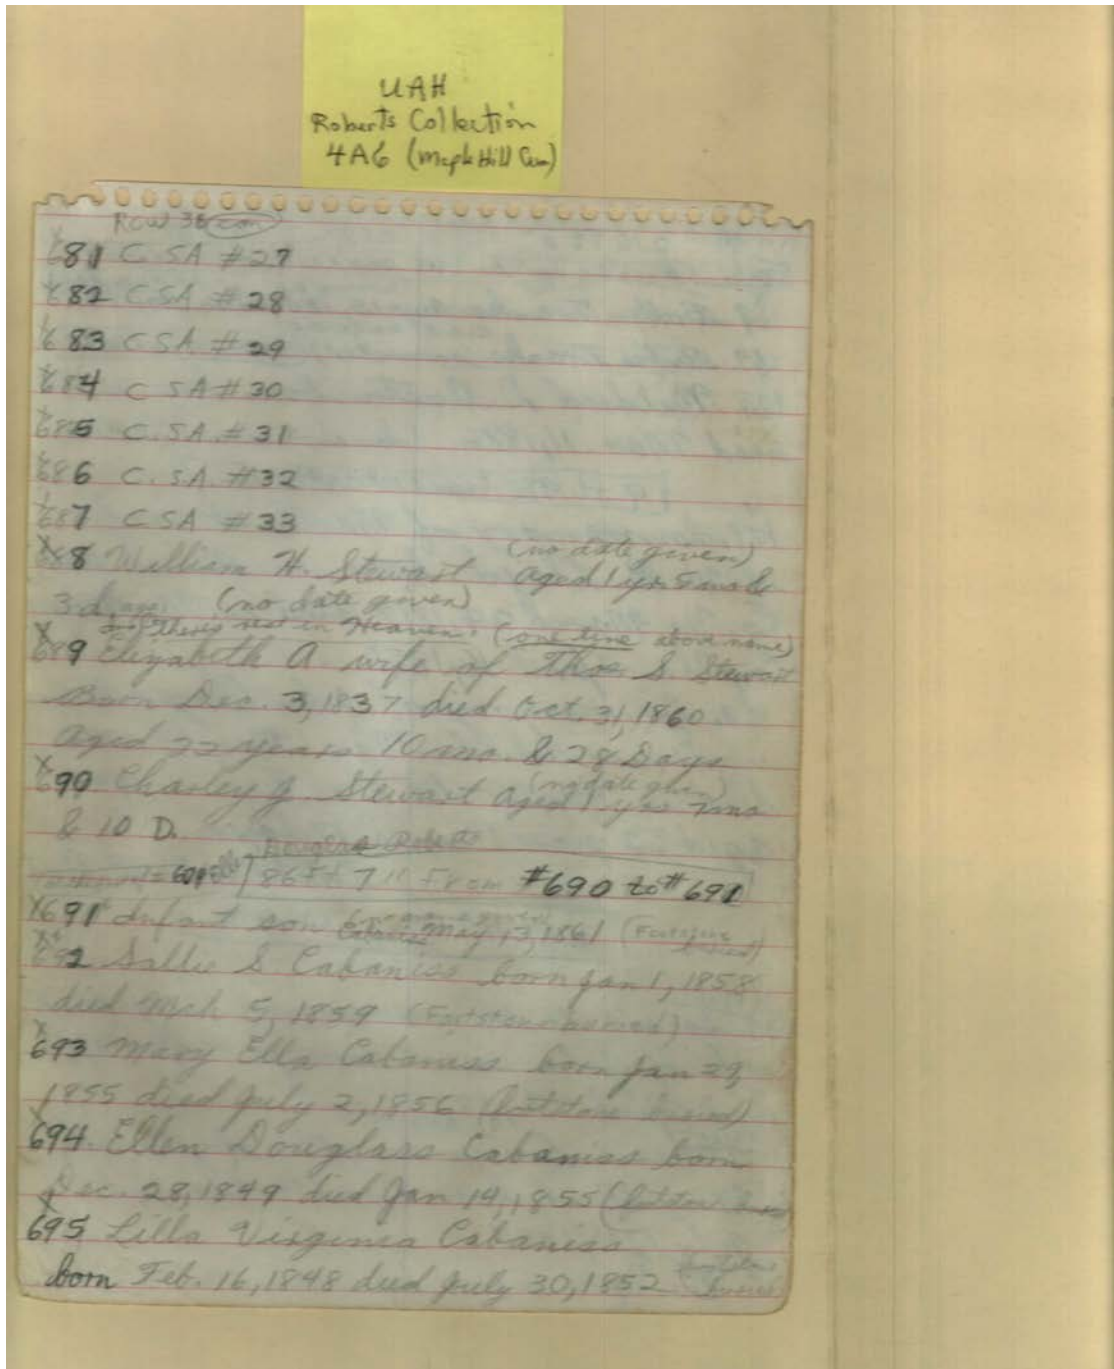 UAH
Roberts Collection
4A6 (Maple Hill Cem)
Row 36 con
681 C SA #27
682 C SA #28
683 C SA #29
684 C SA #30
685 C. SA. #31
686 C. SA #32
687 C SA #33
(no date given)
688 William H. Stewart aged 1 yr. 5 mo &
3 d. (no date given)
theres rest in Heaven. (one line above name)
689 Elizabeth A wife of Thos. S. Stewart
Born Dec. 3, 1837 died Oct. 31, 1860
aged 22 years 10 mo. & 28 Days
(no date given)
690 Charley J Stewart aged 1 yrs 7 mo
& 10 D.
Douglas Roberts
86 Ft 7 in From #690 to #691
691 Infant son May 13, 1861 (Footstone buried)
692 Sallie S Cabaniss born Jan 1, 1858
died Mch 5, 1859 (Footstone buried)
693 Mary Ella Cabaniss born Jan 29,
1855 died July 2, 1856 (footstone buried)
694. Ellen Douglass Cabaniss born
Dec. 28, 1849 died Jan 14, 1855 (
695 Lilla Virginia Cabaniss
born Feb. 16, 1848 died July 30, 1852 footstone buried